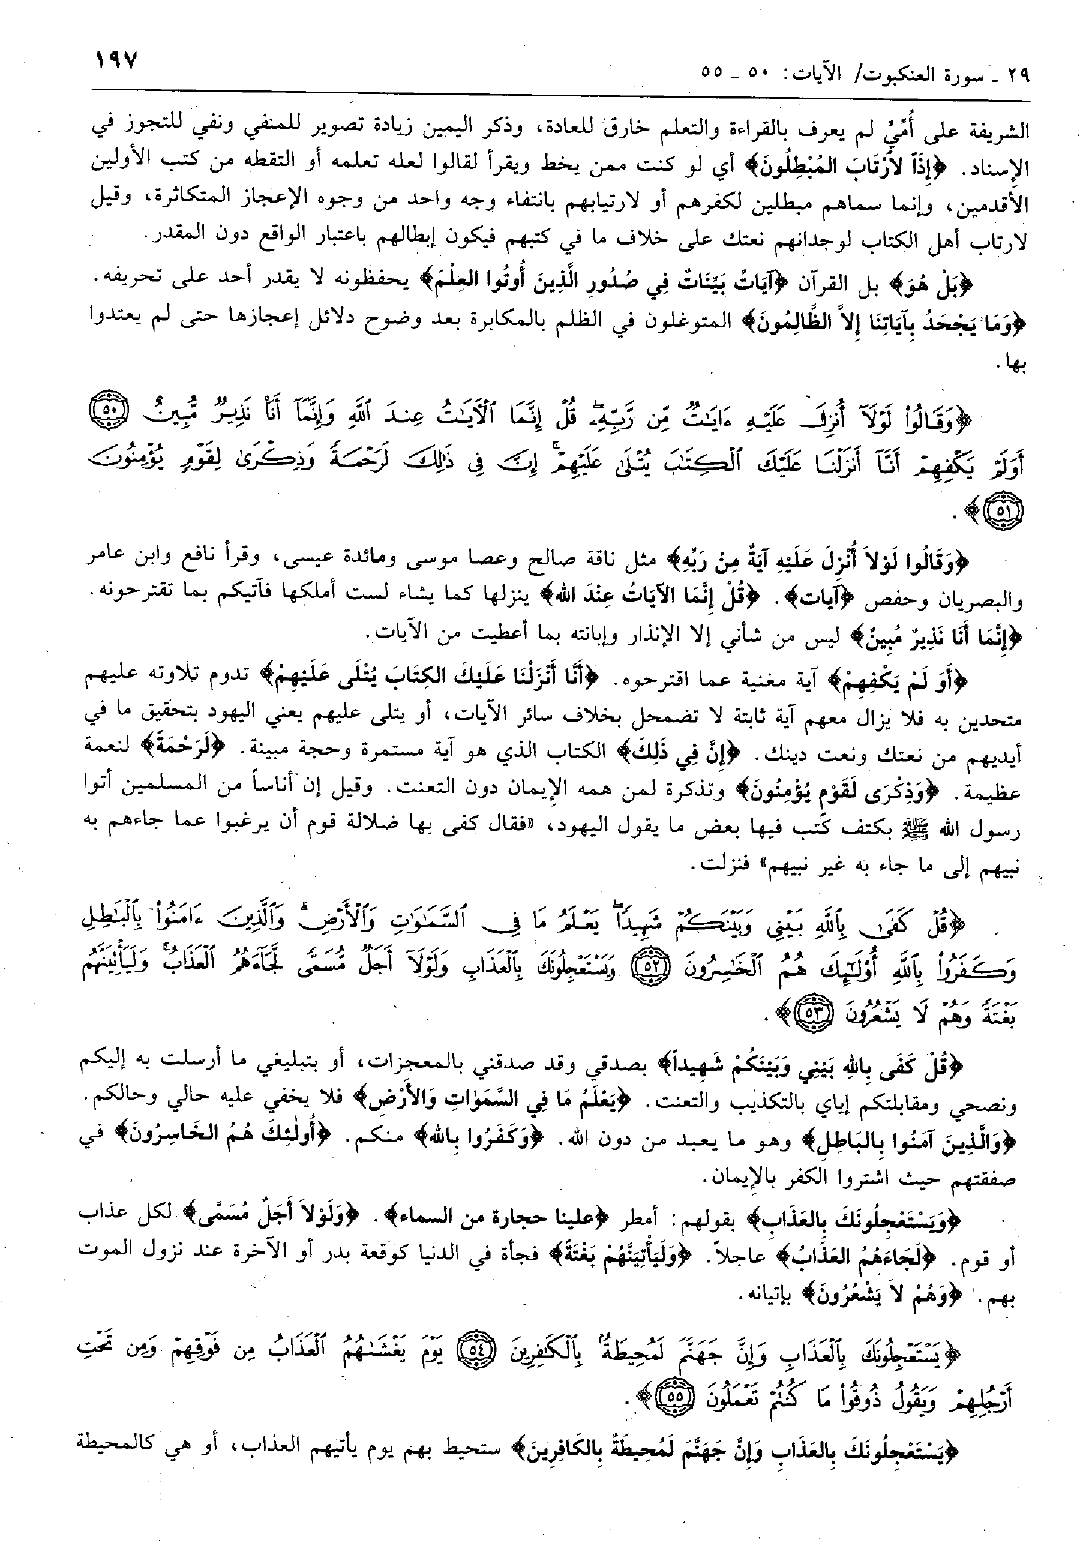 ٢٩ ـ سورة العنكبوت/ الآيات: ٥٠ ـ ٥٥
١٩٧
الشريفة على أُمّيّ لم يعرف بالقراءة والتعلم خارق للعادة، وذكر اليمين زيادة تصوير للمنفي ونفي للتجوز في
الإسناد. ﴿إِذَاً لاَرْتَابَ المُبْطِلُونَ﴾ أي لو كنت ممن يخط ويقرأ لقالوا لعله تعلمه أو التقطه من كتب الأولين
الأقدمين، وإنما سماهم مبطلين لكفرهم أو لارتيابهم بانتفاء وجه واحد من وجوه الإعجاز المتكاثرة، وقيل
لارتاب أهل الكتاب لوجدانهم نعتك على خلاف ما في كتبهم فيكون إبطالهم باعتبار الواقع دون المقدر.
﴿بَلْ هُوَ﴾ بل القرآن ﴿آيَاتٌ بَيِّنَاتٌ فِي صُدُورِ الَّذِينَ أُوتُوا العِلْمَ﴾ يحفظونه لا يقدر أحد على تحريفه.
﴿وَمَا يَجْحَدُ بِآيَاتِنَا إِلاَّ الظَّالِمُونَ﴾ المتوغلون في الظلم بالمكابرة بعد وضوح دلائل إعجازها حتى لم يعتدوا
بها.
﴿وَقَالُوا۟ لَوْلَآ أُنزِلَ عَلَيْهِ ءَايَٰتٌ مِّن رَّبِّهِۦ ۖ قُلْ إِنَّمَا ٱلْءَايَٰتُ عِندَ ٱللَّهِ وَإِنَّمَآ أَنَا۠ نَذِيرٌ مُّبِينٌ ﴿٥٠﴾
أَوَلَمْ يَكْفِهِمْ أَنَّآ أَنزَلْنَا عَلَيْكَ ٱلْكِتَٰبَ يُتْلَىٰ عَلَيْهِمْ ۚ إِنَّ فِى ذَٰلِكَ لَرَحْمَةً وَذِكْرَىٰ لِقَوْمٍ يُؤْمِنُونَ
﴿٥١﴾﴾.
﴿وَقَالُوا لَوْلاَ أُنْزِلَ عَلَيْهِ آيَةٌ مِنْ رَبِّهِ﴾ مثل ناقة صالح وعصا موسى ومائدة عيسى، وقرأ نافع وابن عامر
والبصريان وحفص ﴿آيات﴾. ﴿قُلْ إِنَّمَا الآيَاتُ عِنْدَ الله﴾ ينزلها كما يشاء لست أملكها فآتيكم بما تقترحونه.
﴿إِنَّمَا أَنَا نَذِيرٌ مُبِينٌ﴾ ليس من شأني إلا الإِنذار وإبانته بما أعطيت من الآيات.
﴿أَوَ لَمْ يَكْفِهِمْ﴾ آية مغنية عما اقترحوه. ﴿أَنَّا أَنْزَلْنَا عَلَيكَ الكِتَابَ يُتْلَى عَلَيْهِمْ﴾ تدوم تلاوته عليهم
متحدين به فلا يزال معهم آية ثابتة لا تضمحل بخلاف سائر الآيات، أو يتلى عليهم يعني اليهود بتحقيق ما في
أيديهم من نعتك ونعت دينك. ﴿إِنَّ فِي ذَلِكَ﴾ الكتاب الذي هو آية مستمرة وحجة مبينة. ﴿لَرَحْمَةً﴾ لنعمة
عظيمة. ﴿وَذِكْرَى لَقَوْمٍ يُؤْمِنُونَ﴾ وتذكرة لمن همه الإِيمان دون التعنت. وقيل إن أناساً من المسلمين أتوا
رسول الله ﷺ بكتف كُتب فيها بعض ما يقول اليهود، «فقال كفى بها ضلالة قوم أن يرغبوا عما جاءهم به
نبيهم إلى ما جاء به غير نبيهم» فنزلت.
﴿قُلْ كَفَىٰ بِٱللَّهِ بَيْنِى وَبَيْنَكُمْ شَهِيدًا ۖ يَعْلَمُ مَا فِى ٱلسَّمَٰوَٰتِ وَٱلْأَرْضِ ۗ وَٱلَّذِينَ ءَامَنُوا۟ بِٱلْبَٰطِلِ
وَكَفَرُوا۟ بِٱللَّهِ أُو۟لَٰٓئِكَ هُمُ ٱلْخَٰسِرُونَ ﴿٥٢﴾ وَيَسْتَعْجِلُونَكَ بِٱلْعَذَابِ ۚ وَلَوْلَآ أَجَلٌ مُّسَمًّى لَّجَآءَهُمُ ٱلْعَذَابُ وَلَيَأْتِيَنَّهُم
بَغْتَةً وَهُمْ لَا يَشْعُرُونَ ﴿٥٣﴾﴾.
﴿قُلْ كَفَى بِاللهِ بَيْنِي وَبَيْنَكُمْ شَهِيداً﴾ بصدقي وقد صدقني بالمعجزات، أو بتبليغي ما أرسلت به إليكم
ونصحي ومقابلتكم إياي بالتكذيب والتعنت. ﴿يَعْلَمُ مَا فِي السَّمَوَاتِ وَالأَرْضِ﴾ فلا يخفي عليه حالي وحالكم.
﴿وَالَّذِينَ آمَنُوا بِالبَاطِلِ﴾ وهو ما يعبد من دون الله. ﴿وَكَفَرُوا بِالله﴾ منكم. ﴿أُولَئِكَ هُمُ الخَاسِرُونَ﴾ في
صفقتهم حيث اشتروا الكفر بالإِيمان.
﴿وَيَسْتَعْجِلُونَكَ بِالعَذَابِ﴾ بقولهم: أمطر ﴿علينا حجارة من السماء﴾. ﴿وَلَوْلاَ أَجَلٌ مُسَمَّى﴾ لكل عذاب
أو قوم. ﴿لَجَاءَهُمُ العَذَابُ﴾ عاجلاً. ﴿وَلَيَأْتِيَنَّهُمْ بَغْتَةً﴾ فجأة في الدنيا كوقعة بدر أو الآخرة عند نزول الموت
بهم. ﴿وَهُمْ لاَ يَشْعُرُونَ﴾ بإتيانه.
﴿يَسْتَعْجِلُونَكَ بِٱلْعَذَابِ وَإِنَّ جَهَنَّمَ لَمُحِيطَةٌۢ بِٱلْكَٰفِرِينَ ﴿٥٤﴾ يَوْمَ يَغْشَىٰهُمُ ٱلْعَذَابُ مِن فَوْقِهِمْ وَمِن تَحْتِ
أَرْجُلِهِمْ وَيَقُولُ ذُوقُوا۟ مَا كُنتُمْ تَعْمَلُونَ ﴿٥٥﴾﴾.
﴿يَسْتَعْجِلُونَكَ بِالعَذَابِ وَإِنَّ جَهَنَّمَ لَمُحِيطَةٌ بِالكَافِرِينَ﴾ ستحيط بهم يوم يأتيهم العذاب، أو هي كالمحيطة